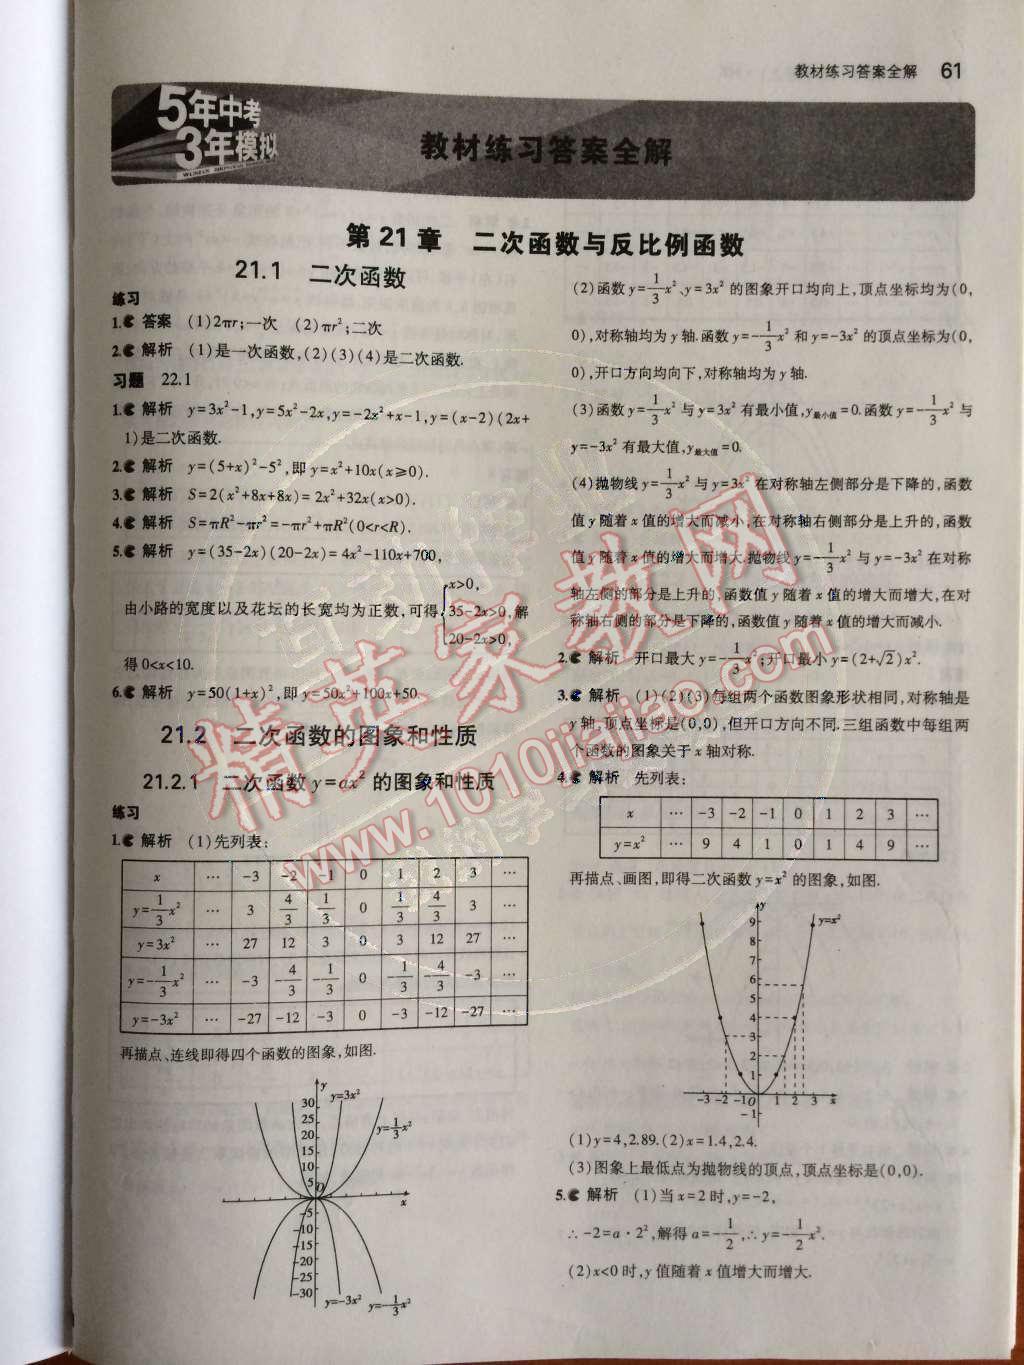 教材练习答案全解 61
5年中考
3年模拟
教材练习答案全解
第21章 二次函数与反比例函数
21.1 二次函数
练习
1. 答案 (1)2πr;一次 (2)πr²;二次
2. 解析 (1)是一次函数,(2)(3)(4)是二次函数.
习题 22.1
1. 解析 y=3x²-1,y=5x²-2x,y=-2x²+x-1,y=(x-2)(2x+
1)是二次函数.
2. 解析 y=(5+x)²-5²,即y=x²+10x(x≥0).
3. 解析 S=2(x²+8x+8x)=2x²+32x(x>0).
4. 解析 S=πR²-πr²=-πr²+πR²(0<r<R).
5. 解析 y=(35-2x)(20-2x)=4x²-110x+700,
由小路的宽度以及花坛的长宽均为正数,可得{x>0, 35-2x>0, 20-2x>0, 解
得0<x<10.
6. 解析 y=50(1+x)²,即y=50x²+100x+50.
21.2 二次函数的图象和性质
21.2.1 二次函数y=ax²的图象和性质
练习
1. 解析 (1)先列表:
x … -3 -2 -1 0 1 2 3 …
y=1/3x² … 3 4/3 1/3 0 1/3 4/3 3 …
y=3x² … 27 12 3 0 3 12 27 …
y=-1/3x² … -3 -4/3 -1/3 0 -1/3 -4/3 -3 …
y=-3x² … -27 -12 -3 0 -3 -12 -27 …
再描点、连线即得四个函数的图象,如图.
y
y=3x²
30
25
20
15
10
5
y=1/3x²
O
x
-5
-10
-15
-20
-25
-30
y=-3x² y=-1/3x²
(2)函数y=1/3x²、y=3x²的图象开口均向上,顶点坐标均为(0,
0),对称轴均为y轴.函数y=-1/3x²和y=-3x²的顶点坐标为(0,
0),开口方向均向下,对称轴均为y轴.
(3)函数y=1/3x²与y=3x²有最小值,y最小值=0.函数y=-1/3x²与
y=-3x²有最大值,y最大值=0.
(4)抛物线y=1/3x²与y=3x²在对称轴左侧部分是下降的,函数
值y随着x值的增大而减小,在对称轴右侧部分是上升的,函数
值y随着x值的增大而增大.抛物线y=-1/3x²与y=-3x²在对称
轴左侧的部分是上升的,函数值y随着x值的增大而增大,在对
称轴右侧的部分是下降的,函数值y随着x值的增大而减小.
2. 解析 开口最大y=-1/3x²;开口最小y=(2+√2)x².
3. 解析 (1)(2)(3)每组两个函数图象形状相同,对称轴是
y轴,顶点坐标是(0,0),但开口方向不同.三组函数中每组两
个函数的图象关于x轴对称.
4. 解析 先列表:
x … -3 -2 -1 0 1 2 3 …
y=x² … 9 4 1 0 1 4 9 …
再描点、画图,即得二次函数y=x²的图象,如图.
y
y=x²
9
8
7
6
5
4
3
2
1
-3 -2 -1 O 1 2 3 x
-1
(1)y=4,2.89.(2)x=1.4,2.4.
(3)图象上最低点为抛物线的顶点,顶点坐标是(0,0).
5. 解析 (1)当x=2时,y=-2,
∴-2=a·2²,解得a=-1/2,∴y=-1/2x².
(2)x<0时,y值随着x值增大而增大.
精英家教网
www.1010jiajiao.com